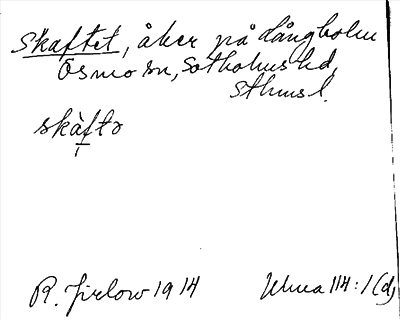 Skaftet, åker på Långholm
Ösmo sn, Sotholms hd,
Sthms l.
skàftə
R. Jirlow 1914 Ulma 114:1 (d)